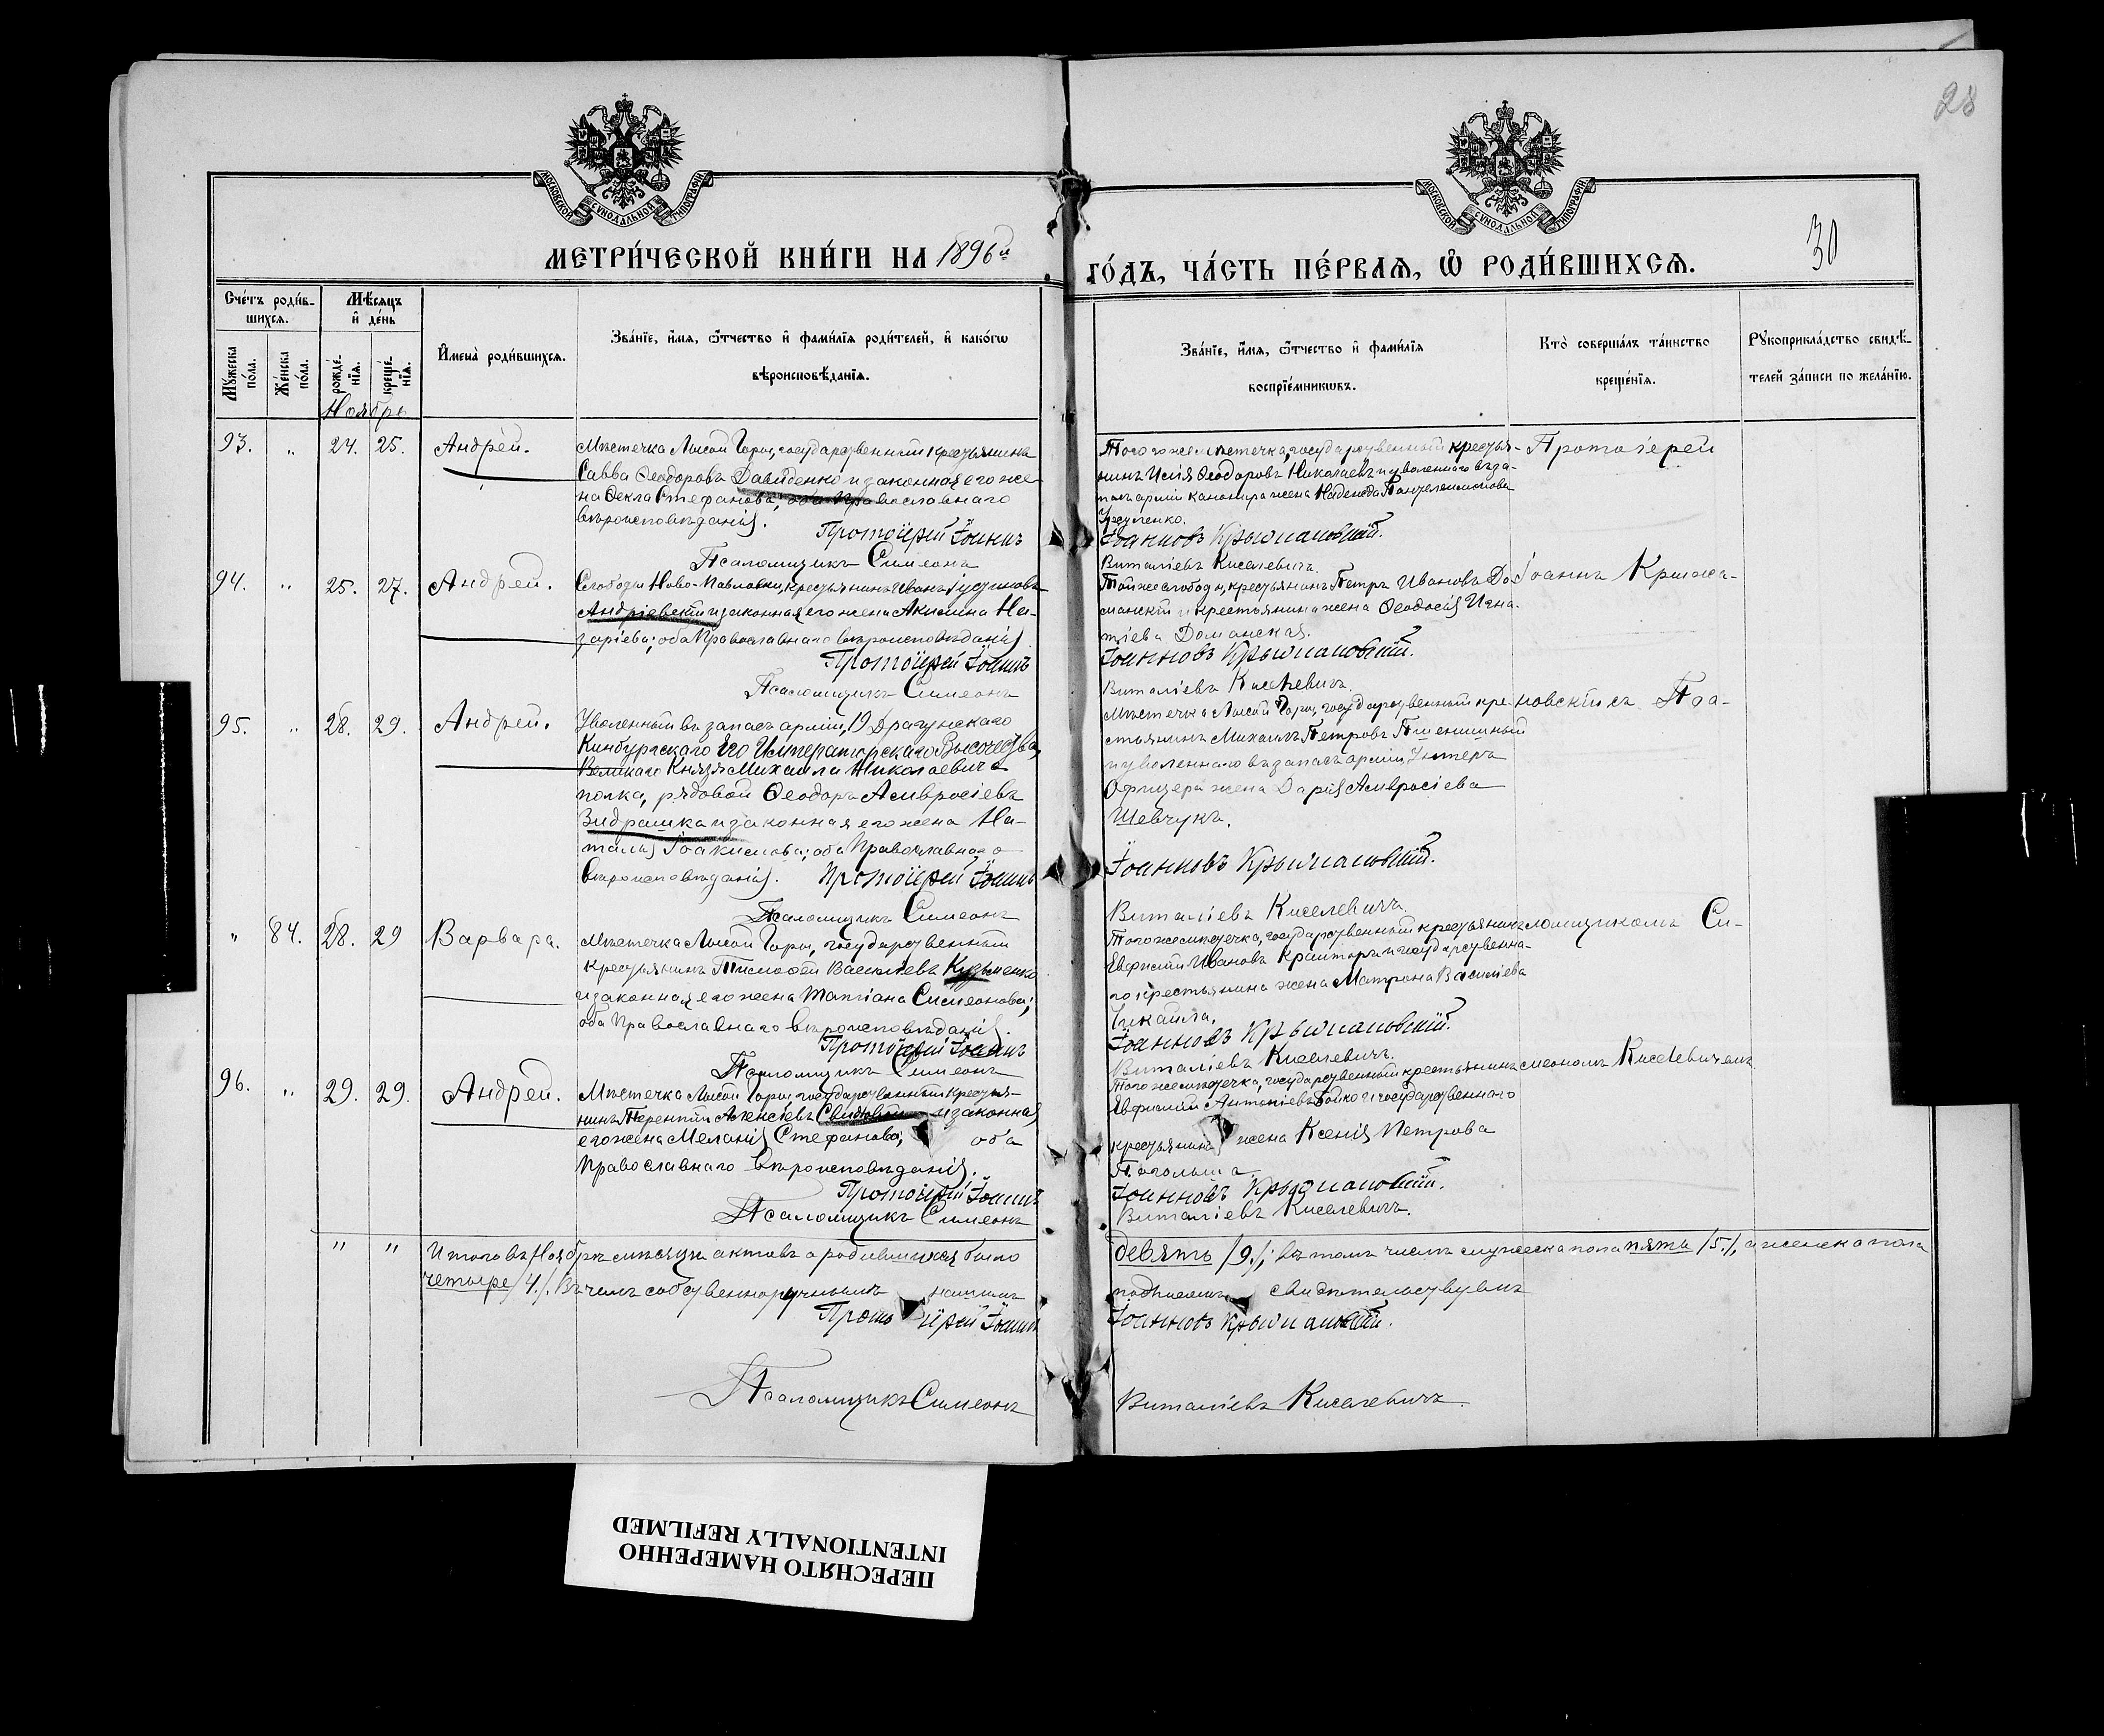 28
МОСКОВСКОЙ СУНОДАЛЬНОЙ ТИПОГРАФІИ
МОСКОВСКОЙ СУНОДАЛЬНОЙ ТИПОГРАФІИ
МЕТРИ́ЧЕСКОЙ КНИ́ГИ НА 1896й
ГО́ДЪ, ЧА́СТЬ ПЕ́РВАЯ, Ѡ҆ РОДИ́ВШИХСЯ.
30
Сче́тъ роди́в-
шихся.
Мѣсяцъ
и҆ де́нь
Мꙋ́жеска
по́ла.
Же́нска
по́ла.
рожде́-
нїя.
креще́-
нїя.
И҆мена̀ роди́вшихся.
Зва́нїе, и҆́мя, ѻ҆́тчество и҆ фами́лїя роди́телей, и҆ како́гѡ
вѣроисповѣ́данїя.
Зва́нїе, и҆́мя, ѻ҆́тчество и҆ фами́лїя
воспрїе́мникѡвъ.
Кто̀ соверша́лъ та́инство
креще́нїя.
Рꙋкоприкла́дство свидѣ́-
телей за́писи по жела́нїю.
Ноябрь
93. " 24. 25. Андрей.
Мѣстечка Лысой Горы, государственный крестьянинъ
Савва Ѳеодоровъ Давиденко и законная его же-
на Ѳекла Стефанова; оба Православнаго
вѣроисповѣданія.
Протоіерей Іоаннъ
Псаломщикъ Симеонъ
Того же мѣстечка, государственный крестья-
нинъ Исаія Ѳеодоровъ Николаевъ и уволеннаго въ за-
пасъ арміи канонира жена Надежда Пантелеимонова
Іоанновъ Крыжановскій.
Виталіевъ Киселевичъ.
Протоіерей
94. " 25. 27. Андрей.
Слободы Ново-Павловки, крестьянинъ Иванъ Іустиновъ
Андріевскій и законная его жена Акилина На-
заріева; оба Православнаго вѣроисповѣданія.
Протоіерей Іоаннъ
Псаломщикъ Симеонъ
Той же слободы, крестьянинъ Петръ Ивановъ До-
манскій и крестьянина жена Ѳеодосія Игна-
тіева Доманская.
Іоанновъ Крыжановскій.
Виталіевъ Киселевичъ.
Іоаннъ Крыжа-
95. " 28. 29. Андрей.
Уволенный въ запасъ арміи, 19 Драгунскаго
Кинбургскаго Его Императорскаго Высочества,
Великаго Князя Михаила Николаевича
полка, рядовой Ѳеодоръ Амвросіевъ
Зидрашка и законная его жена На-
талія Іоакимова; оба Православнаго
вѣроисповѣданія. Протоіерей Іоаннъ
Псаломщикъ Симеонъ
Мѣстечка Лысой Горы, государственный кре-
стьянинъ Михаилъ Петровъ Пшеничный
и уволеннаго въ запасъ арміи, Унтеръ
Офицера жена Дарія Амвросіева
Шевчукъ.
Іоанновъ Крыжановскій.
Виталіевъ Киселевичъ.
новскій съ Пса-
" 84. 28. 29 Варвара.
Мѣстечка Лысой Горы, государственный
крестьянинъ Тимофей Васильевъ Кузьменко
и законная его жена Татіана Симеонова;
оба Православнаго вѣроисповѣданія.
Протоіерей Іоаннъ
Псаломщикъ Симеонъ
Того же мѣстечка, государственный крестьянинъ
Евфимій Ивановъ и государственна-
го крестьянина жена Матрона Василіева
Іоанновъ Крыжановскій.
Виталіевъ Киселевичъ.
ломщикомъ Си-
96. " 29. 29. Андрей.
Мѣстечка Лысой Горы, государственный крестья-
нинъ Терентій Алексіевъ и законная
его жена Меланія Стефанова; оба
Православнаго вѣроисповѣданія.
Протоіерей Іоаннъ
Псаломщикъ Симеонъ
Того же мѣстечка, государственный крестьянинъ
Евфимій Антоніевъ Бойко и государственного
крестьянина жена Ксенія Петрова
Іоанновъ Крыжановскій.
Виталіевъ Киселевичъ.
меономъ Киселевичемъ
" " Итого въ Ноябрѣ мѣсяцѣ актовъ о родившихся было
девять /9./; въ томъ числѣ мужеска пола пять /5./, а женска пола
четыре /4./. Въ чемъ собственноручнымъ нашимъ
подписомъ свидѣтельствуемъ
Протоіерей Іоаннъ
Іоанновъ Крыжановскій.
Псаломщикъ Симеонъ
Виталіевъ Киселевичъ.
ПЕРЕСНЯТО НАМЕРЕННО
INTENTIONALLY REFILMED